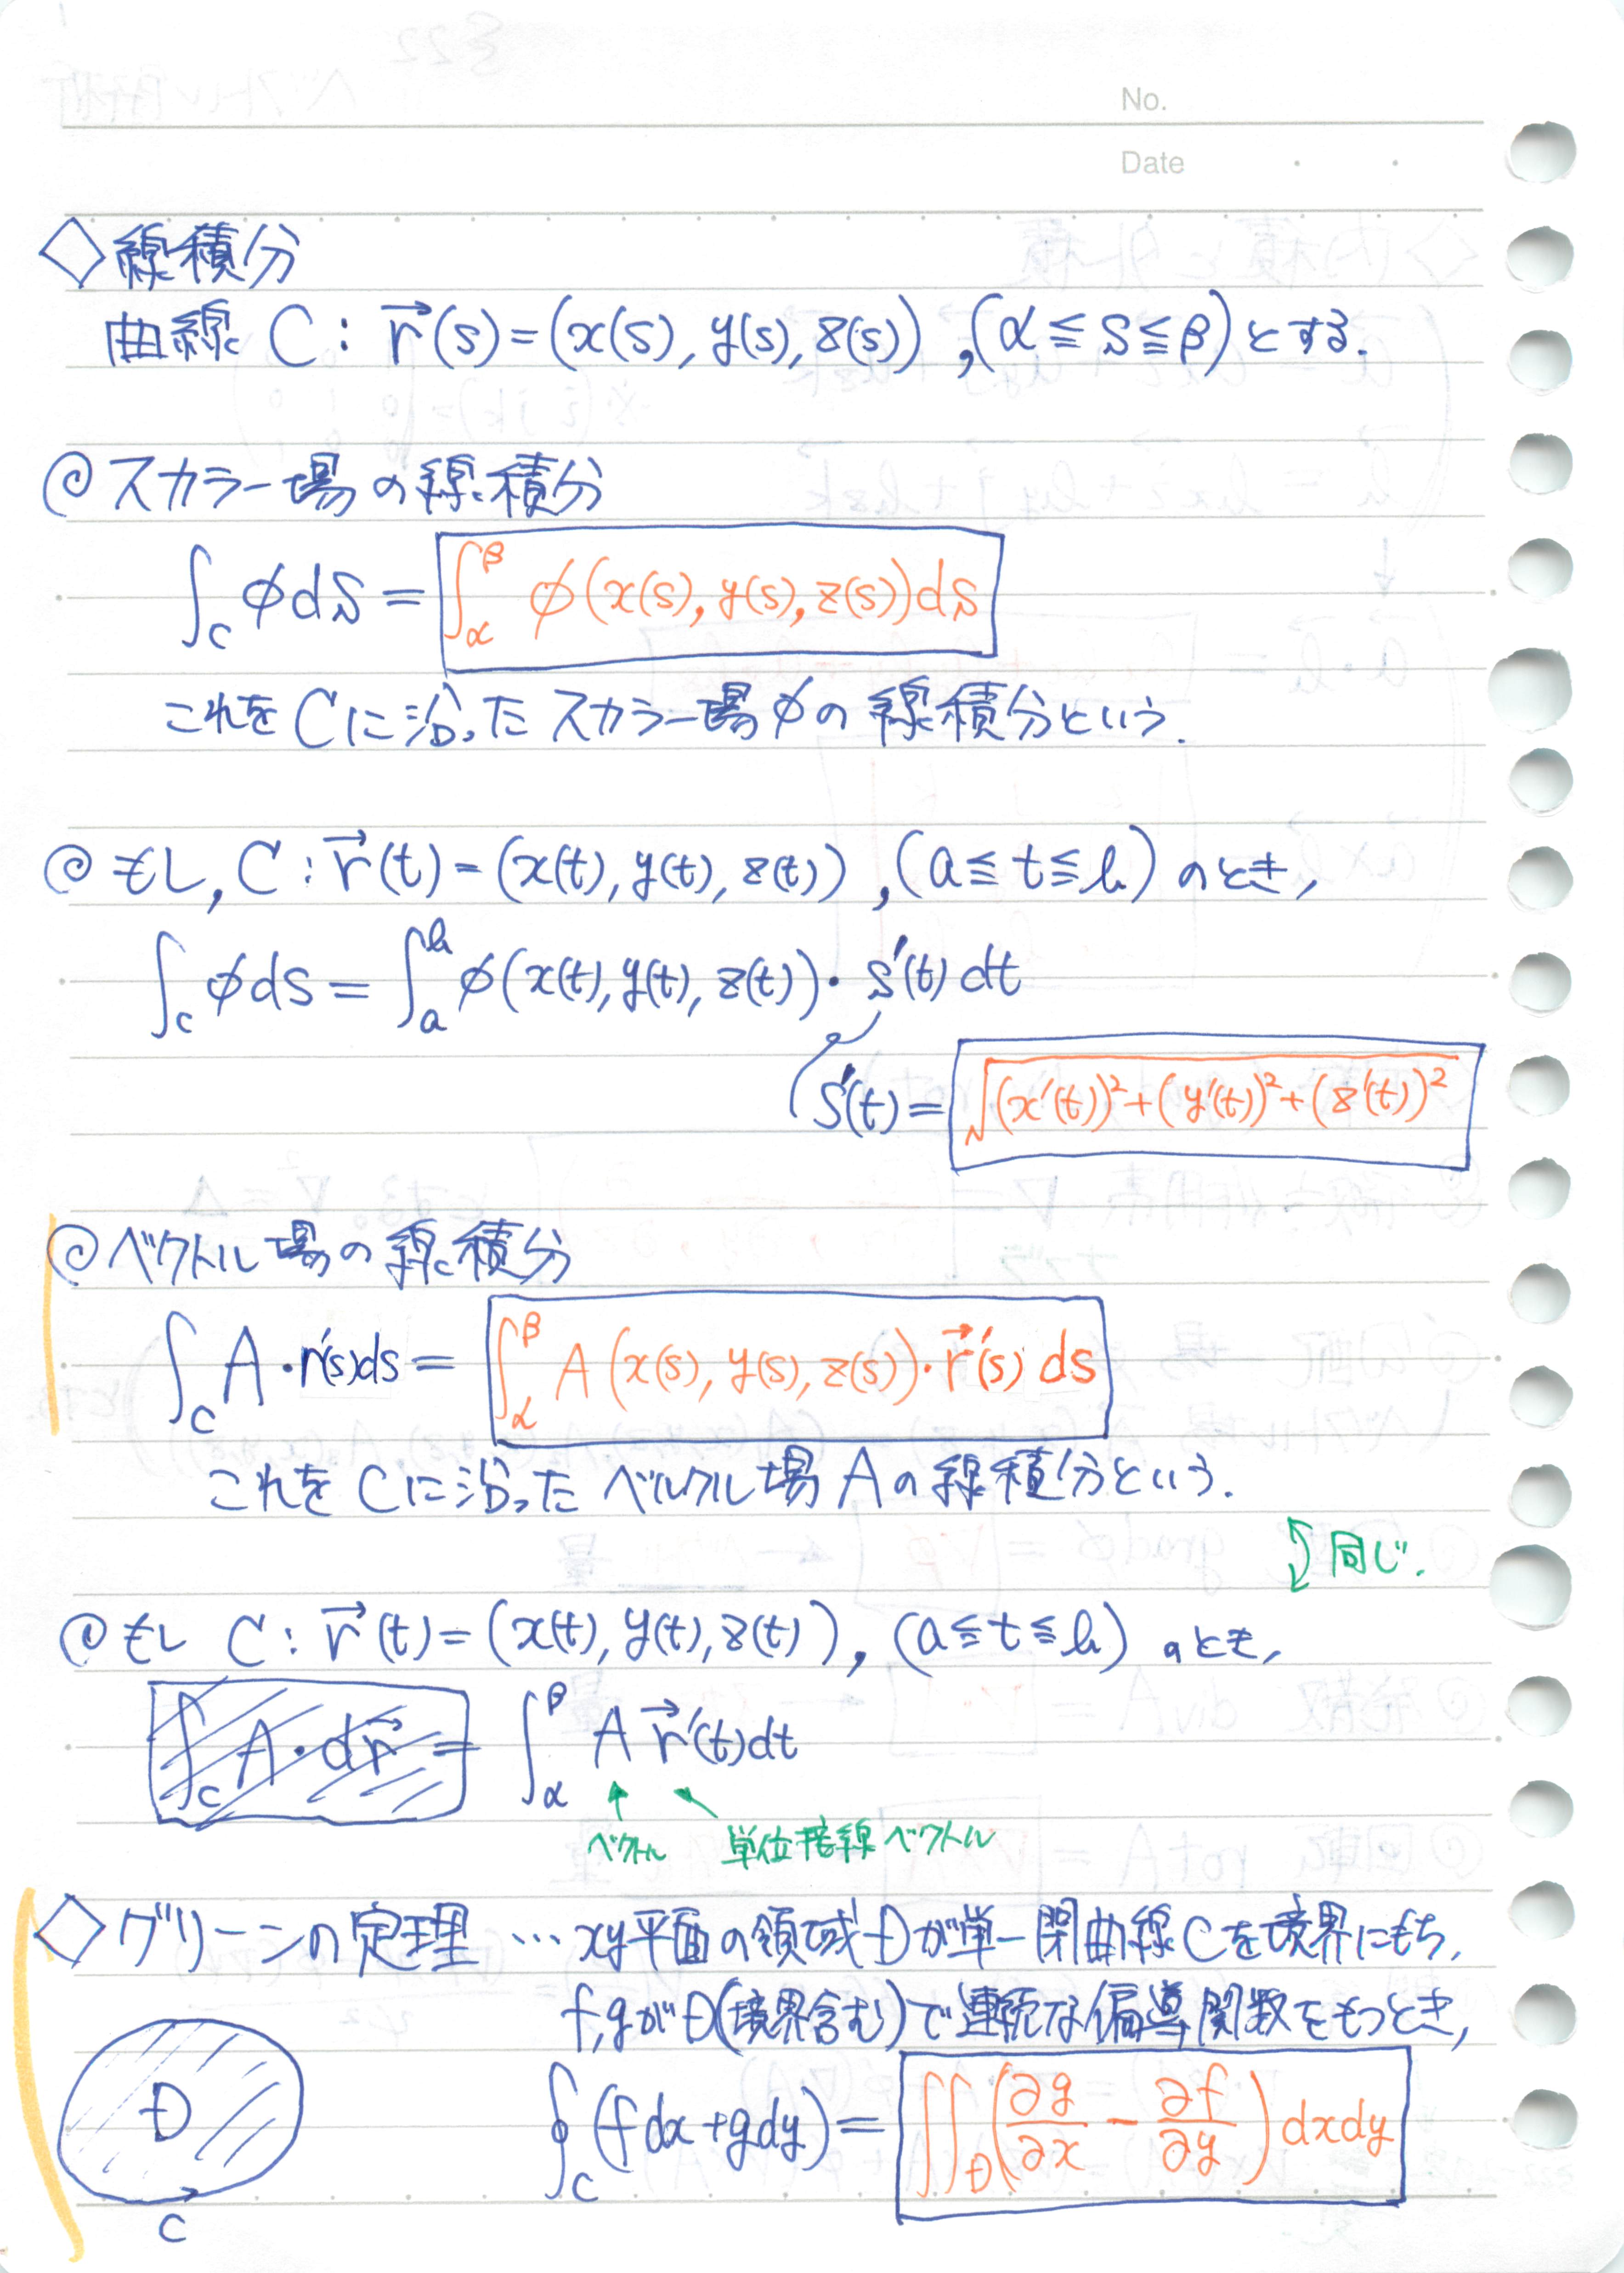 No.
Date
◇線積分
曲線 C: r⃗(s)=(x(s), y(s), z(s)) ,(α≦s≦β)とする.
@スカラー場の線積分
∫_C φds = ∫_α^β φ(x(s), y(s), z(s))ds
これをCに沿ったスカラー場φの線積分という.
@もし, C: r⃗(t)=(x(t), y(t), z(t)) ,(a≦t≦b)のとき,
∫_C φds = ∫_a^b φ(x(t), y(t), z(t))・s'(t)dt
s'(t)=√(x'(t))²+(y'(t))²+(z'(t))²
@ベクトル場の線積分
∫_C A・r'(s)ds = ∫_α^β A(x(s), y(s), z(s))・r⃗'(s) ds
これをCに沿ったベルクル場Aの線積分という.
同じ.
@もし C: r⃗(t)=(x(t), y(t), z(t)), (a≦t≦b)のとき,
∫_C A・dr⃗ = ∫_α^β A r⃗'(t)dt
ベクトル 単位接線ベクトル
◇グリーンの定理 … xy平面の領域Dが単一閉曲線Cを境界にもち,
f,gがD(境界含む)で連続な偏導関数をもつとき,
D
∮_C (fdx+gdy)= ∬_D (∂g/∂x - ∂f/∂y) dxdy
C